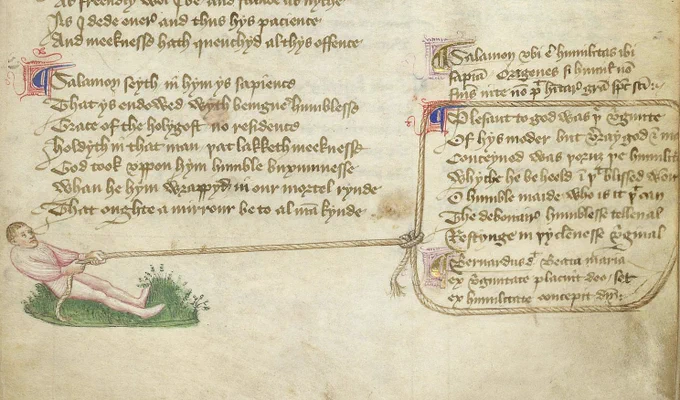 As freendly wol I be and
As I dede ever and thus hys pacience
And meeknesse hath quenchyd al thys offence
Salamon seyth in hym ys sapience
That ys endowed wyth benigne humblesse
Grace of the holy gost no residence
holdyth in that man þat lakketh meeknesse
God took vppon hym humble buxumnesse
Whan he hym wrappyd in our mortel rynde
That oughte a mirrour be to al mākynde
Salamon vbi ē humilitas ibi
sapīa Origenes si humil nō
Plesaut to god was þe v̄ginite
Of hys moder but v̄ray god & ma
Conceyued was þoruz þe humilite
Whythe he beheeld ī þt blissed wom
O humble maide who is it þt can
The debonair humblesse telle al
Restynge in þy clennesse v̄ginal
Bernardus d Beata maria
ex v̄ginitate placuit deo set
ex humilitate concepit dn̄m